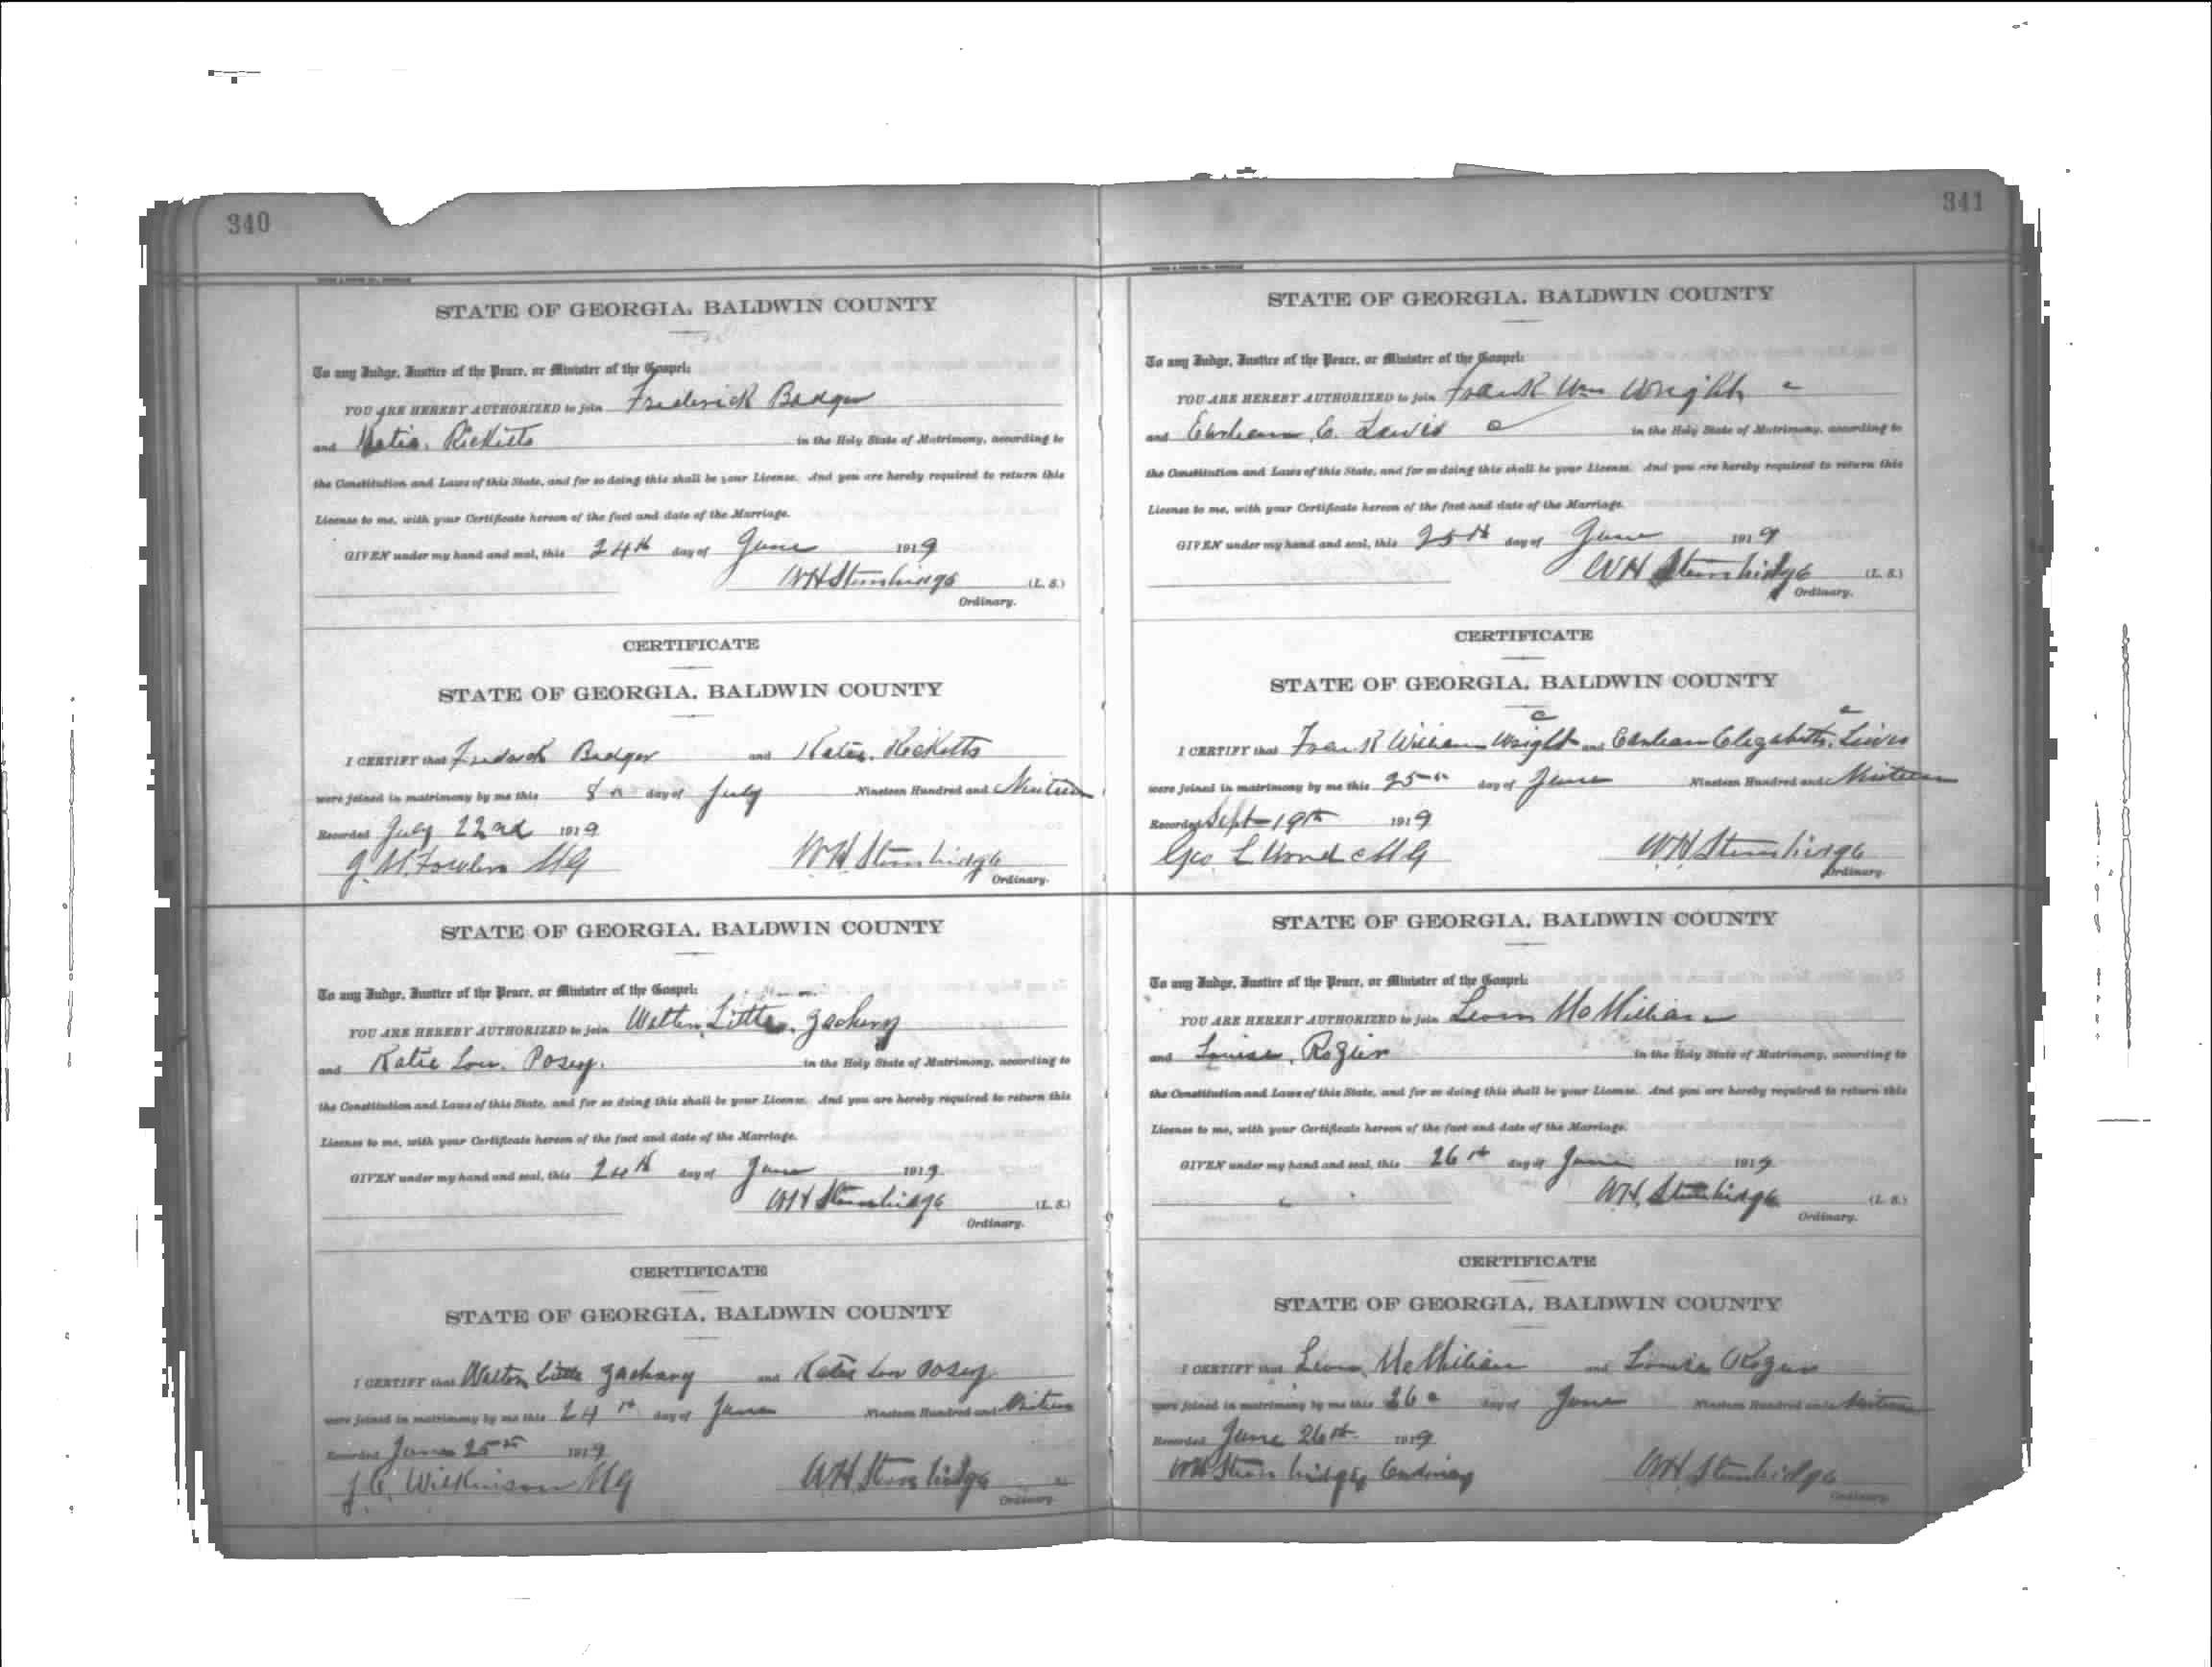 340
STATE OF GEORGIA, BALDWIN COUNTY
To any Judge, Justice of the Peace, or Minister of the Gospel:
YOU ARE HEREBY AUTHORIZED to join Frederick Badger
and Katie Ricketts in the Holy State of Matrimony, according to
the Constitution and Laws of this State, and for so doing this shall be your License. And you are hereby required to return this
License to me, with your Certificate hereon of the fact and date of the Marriage.
GIVEN under my hand and seal, this 24th day of June 1919
WH Stembridge (L. S.)
Ordinary.
CERTIFICATE
STATE OF GEORGIA, BALDWIN COUNTY
I CERTIFY that Frederick Badger and Katie Ricketts
were joined in matrimony by me this 8th day of July Nineteen Hundred and Nineteen
Recorded July 22nd 1919
J. M. Fowler MG W.H. Stembridge
Ordinary.
STATE OF GEORGIA, BALDWIN COUNTY
To any Judge, Justice of the Peace, or Minister of the Gospel:
YOU ARE HEREBY AUTHORIZED to join Walton Little Zachary
and Katie Lou Posey. in the Holy State of Matrimony, according to
the Constitution and Laws of this State, and for so doing this shall be your License. And you are hereby required to return this
License to me, with your Certificate hereon of the fact and date of the Marriage.
GIVEN under my hand and seal, this 24th day of June 1919
WH Stembridge (L. S.)
Ordinary.
CERTIFICATE
STATE OF GEORGIA, BALDWIN COUNTY
I CERTIFY that Walton Little Zachary and Katie Lou Posey
were joined in matrimony by me this 24th day of June Nineteen Hundred and Nineteen
Recorded June 25th 1919
J.C. Wilkinson MG WH Stembridge
Ordinary
341
STATE OF GEORGIA, BALDWIN COUNTY
To any Judge, Justice of the Peace, or Minister of the Gospel:
YOU ARE HEREBY AUTHORIZED to join Frank Wm Wright c
and E. Lewis c in the Holy State of Matrimony, according to
the Constitution and Laws of this State, and for so doing this shall be your License. And you are hereby required to return this
License to me, with your Certificate hereon of the fact and date of the Marriage.
GIVEN under my hand and seal, this 25th day of June 1919
WH Stembridge (L. S.)
Ordinary.
CERTIFICATE
STATE OF GEORGIA, BALDWIN COUNTY
c c
I CERTIFY that Frank William Wright and Elizabeth Lewis
were joined in matrimony by me this 25th day of June Nineteen Hundred and Nineteen
Recorded Sept 19th 1919
Geo L MG W.H. Stembridge
Ordinary.
STATE OF GEORGIA, BALDWIN COUNTY
To any Judge, Justice of the Peace, or Minister of the Gospel:
YOU ARE HEREBY AUTHORIZED to join Leon McMillian
and Louise Rozier in the Holy State of Matrimony, according to
the Constitution and Laws of this State, and for so doing this shall be your License. And you are hereby required to return this
License to me, with your Certificate hereon of the fact and date of the Marriage.
GIVEN under my hand and seal, this 26th day of June 1919
WH Stembridge (L. S.)
Ordinary.
CERTIFICATE
STATE OF GEORGIA, BALDWIN COUNTY
I CERTIFY that Leon McMilian and Louise Rozier
were joined in matrimony by me this 26 day of June Nineteen Hundred and Nineteen
Recorded June 26th 1919
WH Stembridge Ordinary WH Stembridge
Ordinary